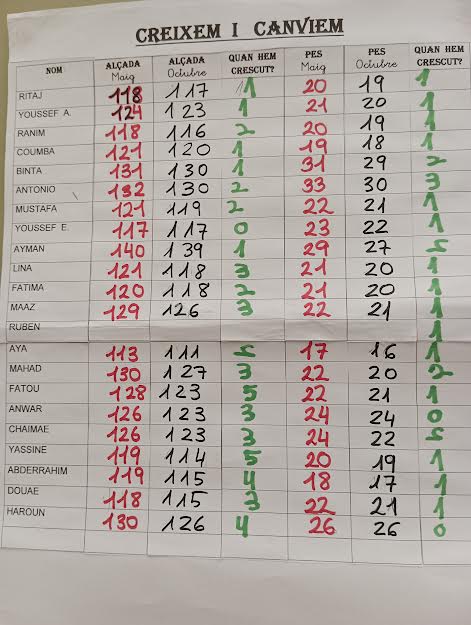 CREIXEM I CANVIEM
NOM ALÇADA Maig ALÇADA Octubre QUAN HEM CRESCUT? PES Maig PES Octubre QUAN HEM CRESCUT?
RITAJ 118 117 1 20 19 1
YOUSSEF A. 124 123 1 21 20 1
RANIM 118 116 2 20 19 1
COUMBA 121 120 1 19 18 1
BINTA 131 130 1 31 29 2
ANTONIO 132 130 2 33 30 3
MUSTAFA 121 119 2 22 21 1
YOUSSEF E. 117 117 0 23 22 1
AYMAN 140 139 1 29 27 2
LINA 121 118 3 21 20 1
FATIMA 120 118 2 21 20 1
MAAZ 129 126 3 22 21 1
RUBEN 1
AYA 113 111 2 17 16 1
MAHAD 130 127 3 22 20 2
FATOU 128 123 5 22 21 1
ANWAR 126 123 3 24 24 0
CHAIMAE 126 123 3 24 22 2
YASSINE 119 114 5 20 19 1
ABDERRAHIM 119 115 4 18 17 1
DOUAE 118 115 3 22 21 1
HAROUN 130 126 4 26 26 0